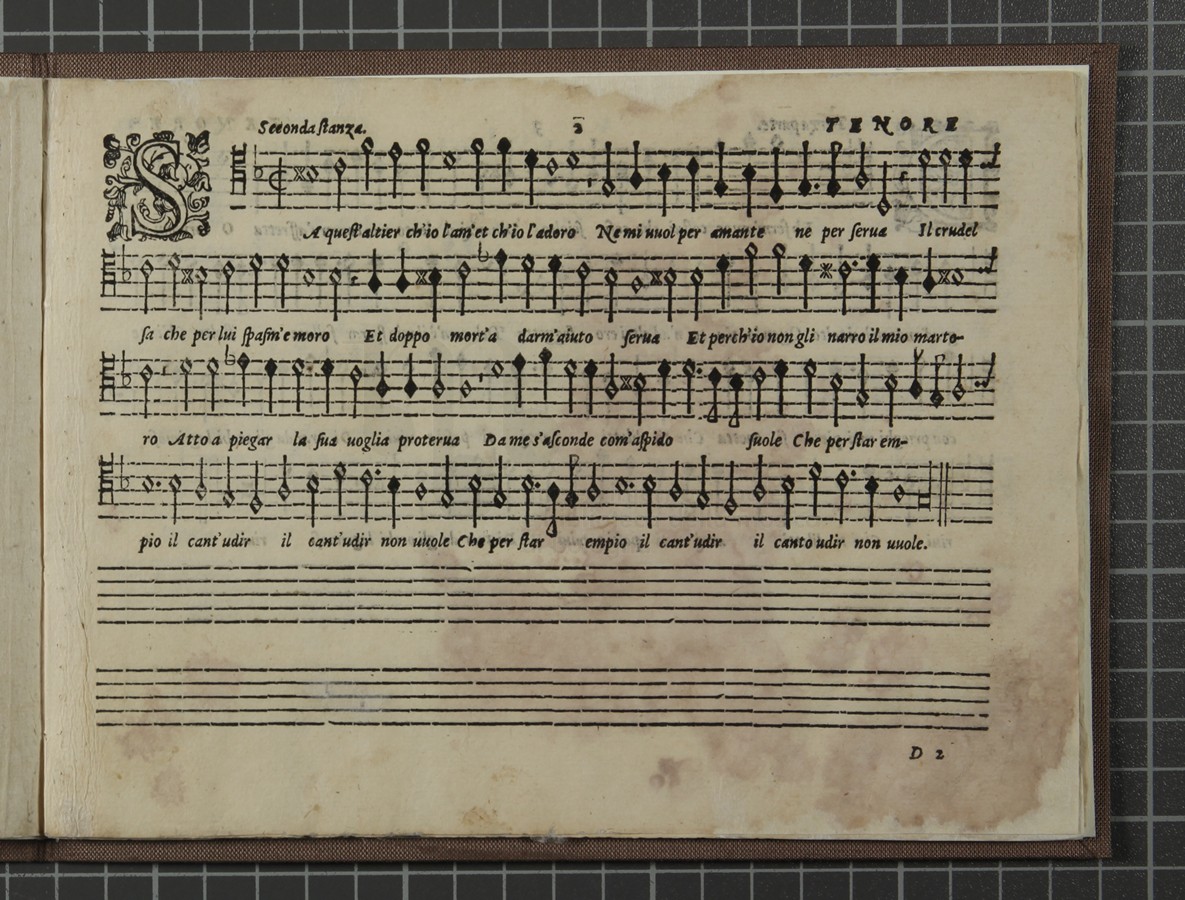 Seconda stanza. 2 TENORE
S A quest'altier ch'io l'am'et ch'io l'adoro Ne mi uuol per amante ne per serua Il crudel
sa che per lui spasm'e moro Et doppo mort'a darm'aiuto serua Et perch'io non gli narro il mio marto-
ro Atto a piegar la sua uoglia proterua Da me s'asconde com'aspido suole Che per star em-
pio il cant'udir il cant'udir non uuole Che per star empio il cant'udir il canto udir non uuole.
D 2